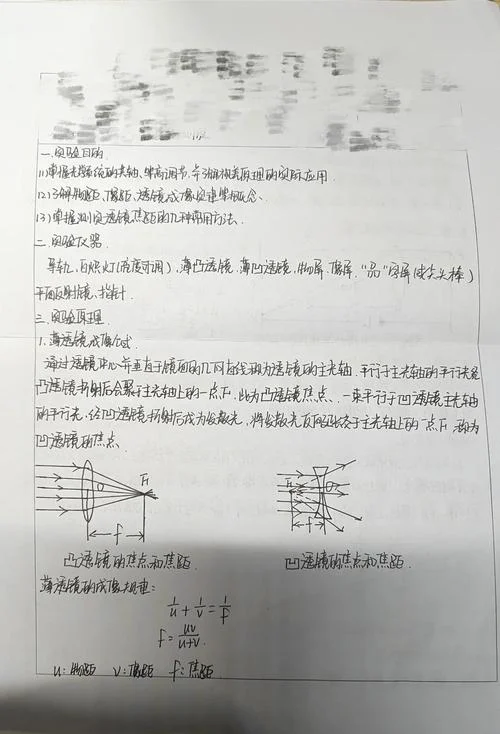 一.实验目的
(1)掌握光学系统的共轴、等高调节,并了解视差原理的实际应用
(2)了解物距、像距、透镜成像定律等概念、
(3)掌握测定透镜焦距的几种常用方法、
二.实验仪器
导轨,白炽灯(亮度可调),薄凸透镜.薄凹透镜,物屏.像屏."品"字屏
平面反射镜、指针
三.实验原理
1.薄透镜成像公式
通过透镜中心并垂直于镜面的几何直线称为透镜的主光轴.平行于主光轴的平行光经
凸透镜折射后会聚于主光轴上的一点F₁,此为凸透镜焦点、一束平行于凹透镜主光轴
的平行光,经凹透镜折射后成为发散光,将发散光反向延长交于主光轴上的一点F₁称为
凹透镜的焦点、
O F₁
f
F₁ O
f
凸透镜的焦点和焦距 凹透镜的焦点和焦距.
薄透镜的成像规律:
1/u + 1/v = 1/f
f = uv/(u+v).
u:物距 v:像距 f:焦距